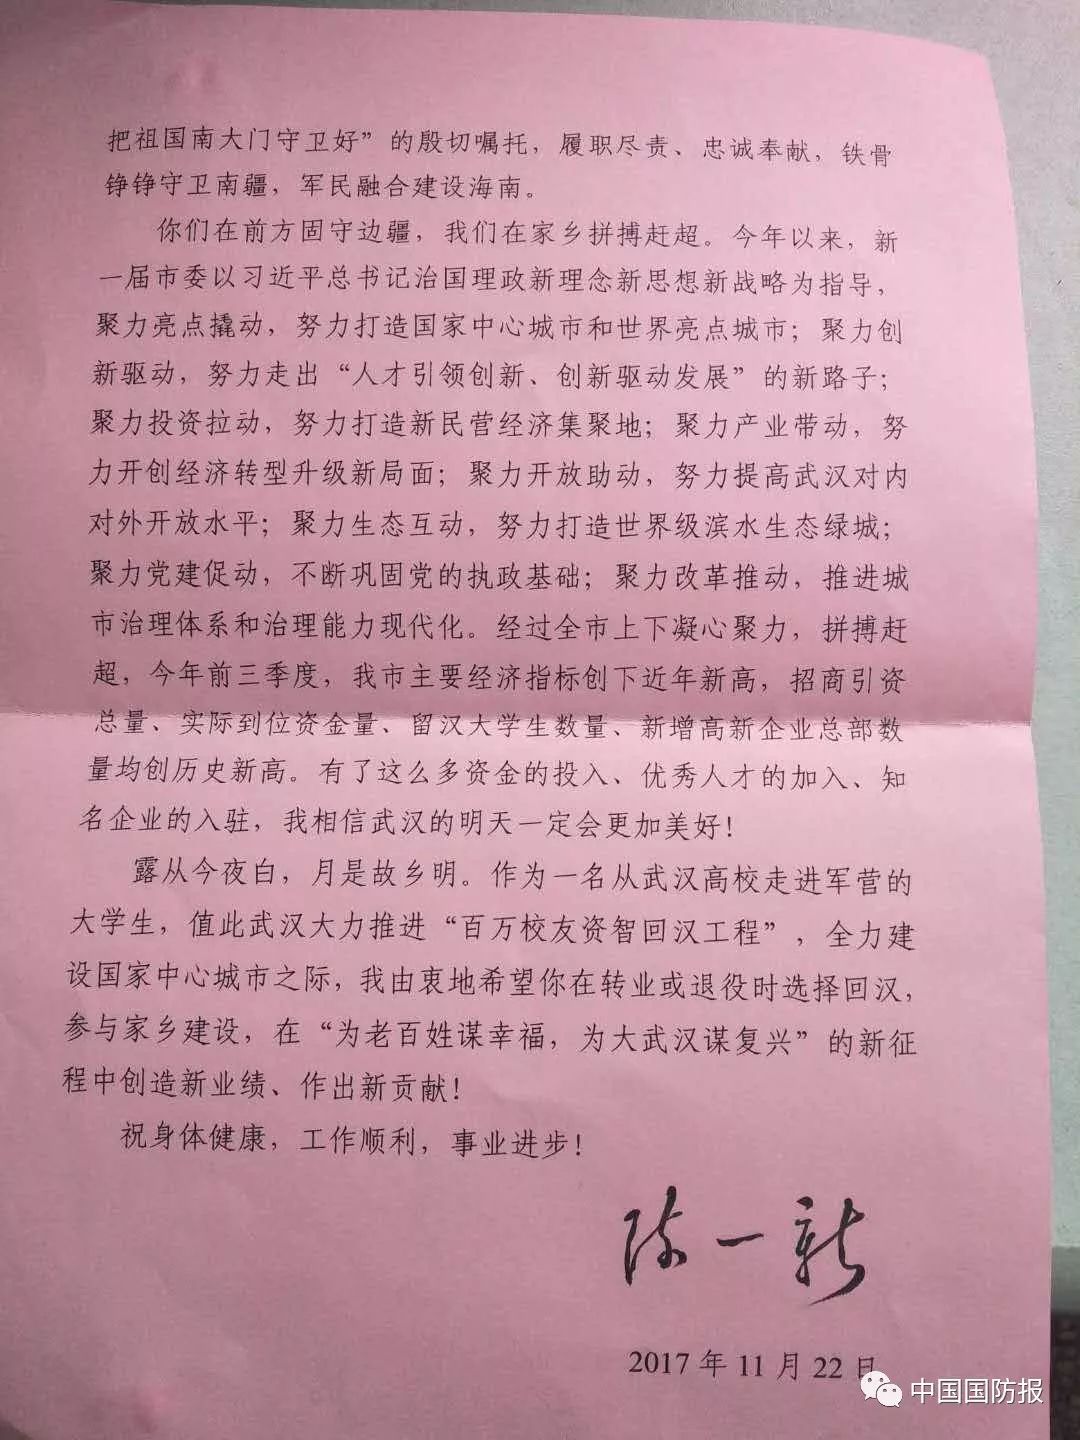 把祖国南大门守卫好”的殷切嘱托，履职尽责、忠诚奉献，铁骨
铮铮守卫南疆，军民融合建设海南。
你们在前方固守边疆，我们在家乡拼搏赶超。今年以来，新
一届市委以习近平总书记治国理政新理念新思想新战略为指导，
聚力亮点撬动，努力打造国家中心城市和世界亮点城市；聚力创
新驱动，努力走出“人才引领创新、创新驱动发展”的新路子；
聚力投资拉动，努力打造新民营经济集聚地；聚力产业带动，努
力开创经济转型升级新局面；聚力开放助动，努力提高武汉对内
对外开放水平；聚力生态互动，努力打造世界级滨水生态绿城；
聚力党建促动，不断巩固党的执政基础；聚力改革推动，推进城
市治理体系和治理能力现代化。经过全市上下凝心聚力，拼搏赶
超，今年前三季度，我市主要经济指标创下近年新高，招商引资
总量、实际到位资金量、留汉大学生数量、新增高新企业总部数
量均创历史新高。有了这么多资金的投入、优秀人才的加入、知
名企业的入驻，我相信武汉的明天一定会更加美好！
露从今夜白，月是故乡明。作为一名从武汉高校走进军营的
大学生，值此武汉大力推进“百万校友资智回汉工程”，全力建
设国家中心城市之际，我由衷地希望你在转业或退役时选择回汉，
参与家乡建设，在“为老百姓谋幸福，为大武汉谋复兴”的新征
程中创造新业绩、作出新贡献！
祝身体健康，工作顺利，事业进步！
陈一新
2017年11月22日
中国国防报